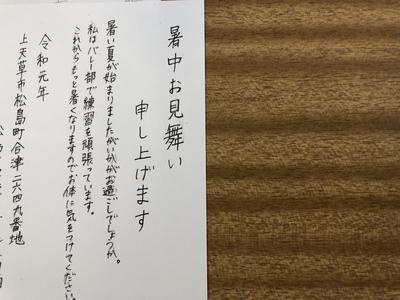 暑中お見舞い
申し上げます
暑い夏が始まりましたがいかがお過ごしでしょうか。
私はバレー部で練習を頑張っています。
これからもっと暑くなりますのでお体に気をつけてください。
令和元年
上天草市松島町合津二六四九番地